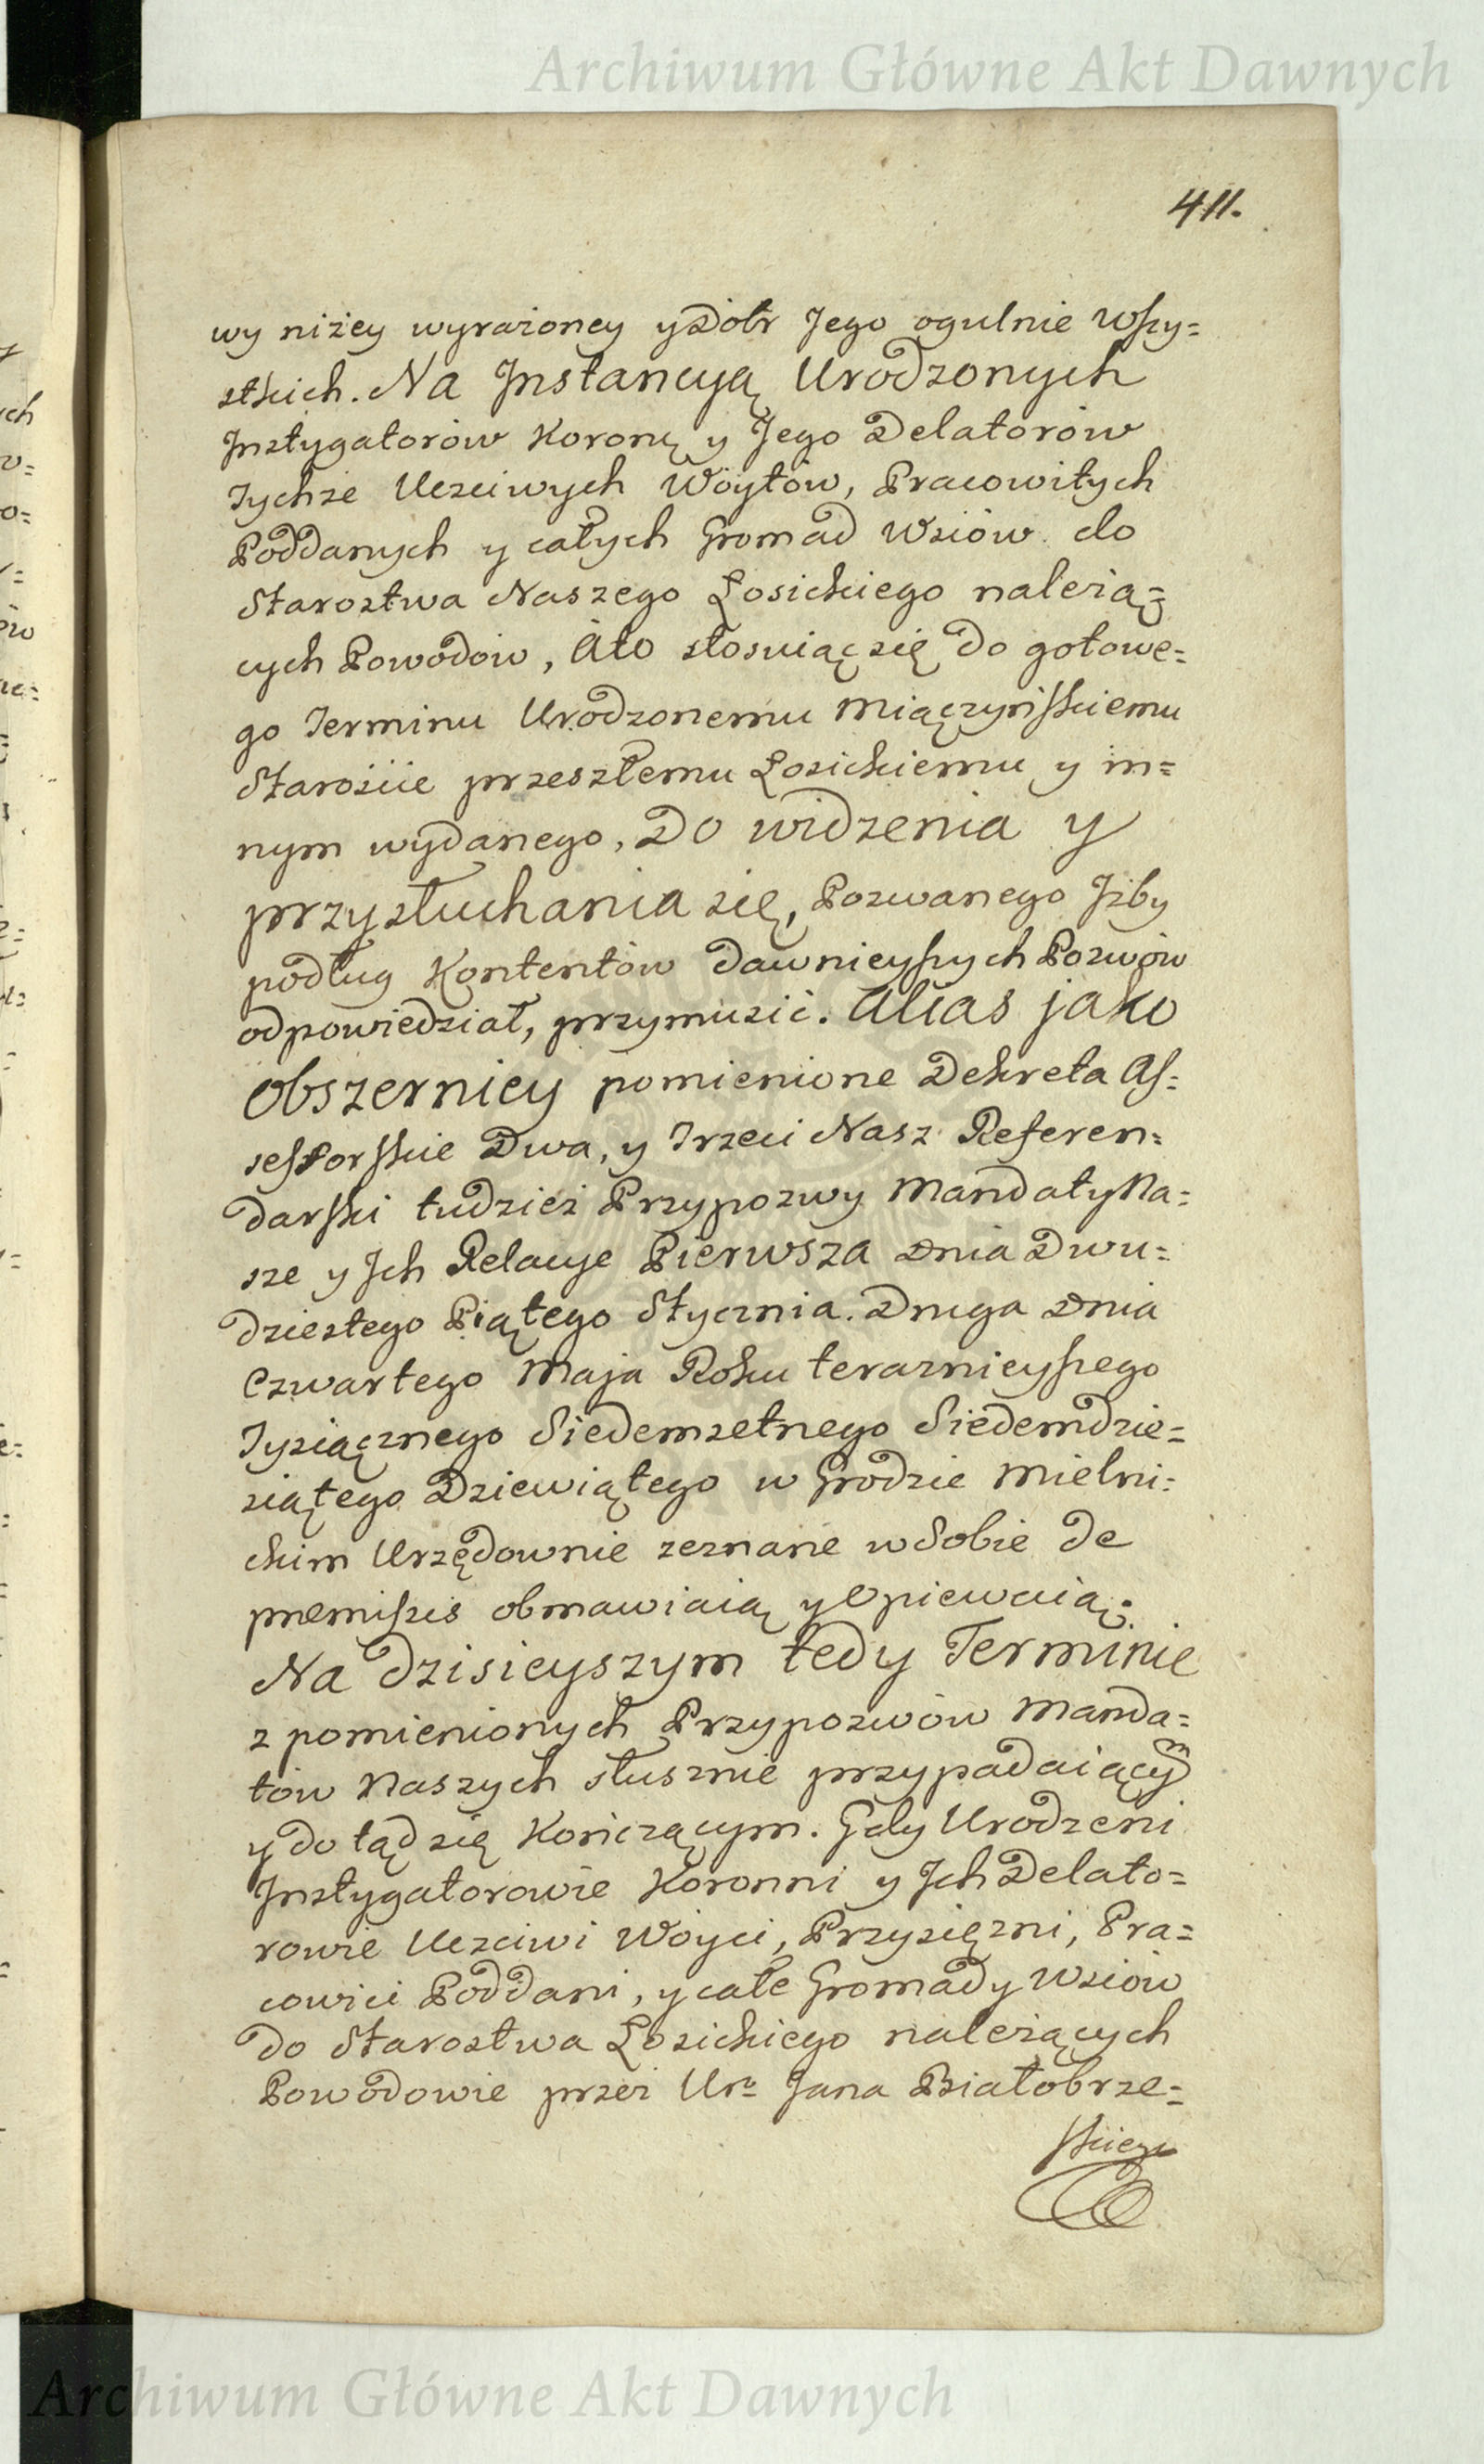 Archiwum Główne Akt Dawnych
411.
wy niżey wyrażoney y Dobr Jego ogulnie wszy=
stkich. Na Jnstancyą Urodzonych
Jnstygatorów Koronų y Jego Delatorów
Tychże Uczciwych Woytów, Pracowitych
Poddanych y całych Gromad Wsiów do
Starostwa Naszego Łosickiego należią=
cych Powodow, Ato stosuiąc się do gotowe=
go Terminu Urodzonemu Miączyńskiemu
Starośćie przeszłemu Łosickiemu y in=
nym wydanego, Do widzenia y
przysłuchania się, Pozwanego Jżby
podług Kontentów dawnieyszych Pozwów
odpowiedział, przymusić. Alias jako
obszerniey pomienione Dekreta As=
sessorskie Dwa, y Trzeci Nasz Referen=
darski tudzież Przypozwy Mandaty Na=
sze y Jch Relacye Pierwsza Dnia Dwu=
dziestego Piątego Stycznia. Druga Dnia
Czwartego Maja Roku teraznieyszego
Tysiącznego Siedemsetnego Siedemdzie=
siątego Dziewiątego w Grodzie Mielni=
ckim Urzędownie zeznane w Sobie de
premissis obmawiaią y Opiewaią.
Na dzisieyszym tedy Terminie
z pomienionych Przypozwów Manda=
tów Naszych słusznie przypadaiącym
y do tąd się Kończącym. Gdy Urodzeni
Jnstygatorowie Koronni y Jch Delato=
rowie Uczciwi Woyci, Przysiężni, Pra=
cowici Poddani, y całe Gromady Wsiów
do Starostwa Łosickiego należących
Powodowie przez Ur: Jana Białobrze=
skiego
Archiwum Główne Akt Dawnych